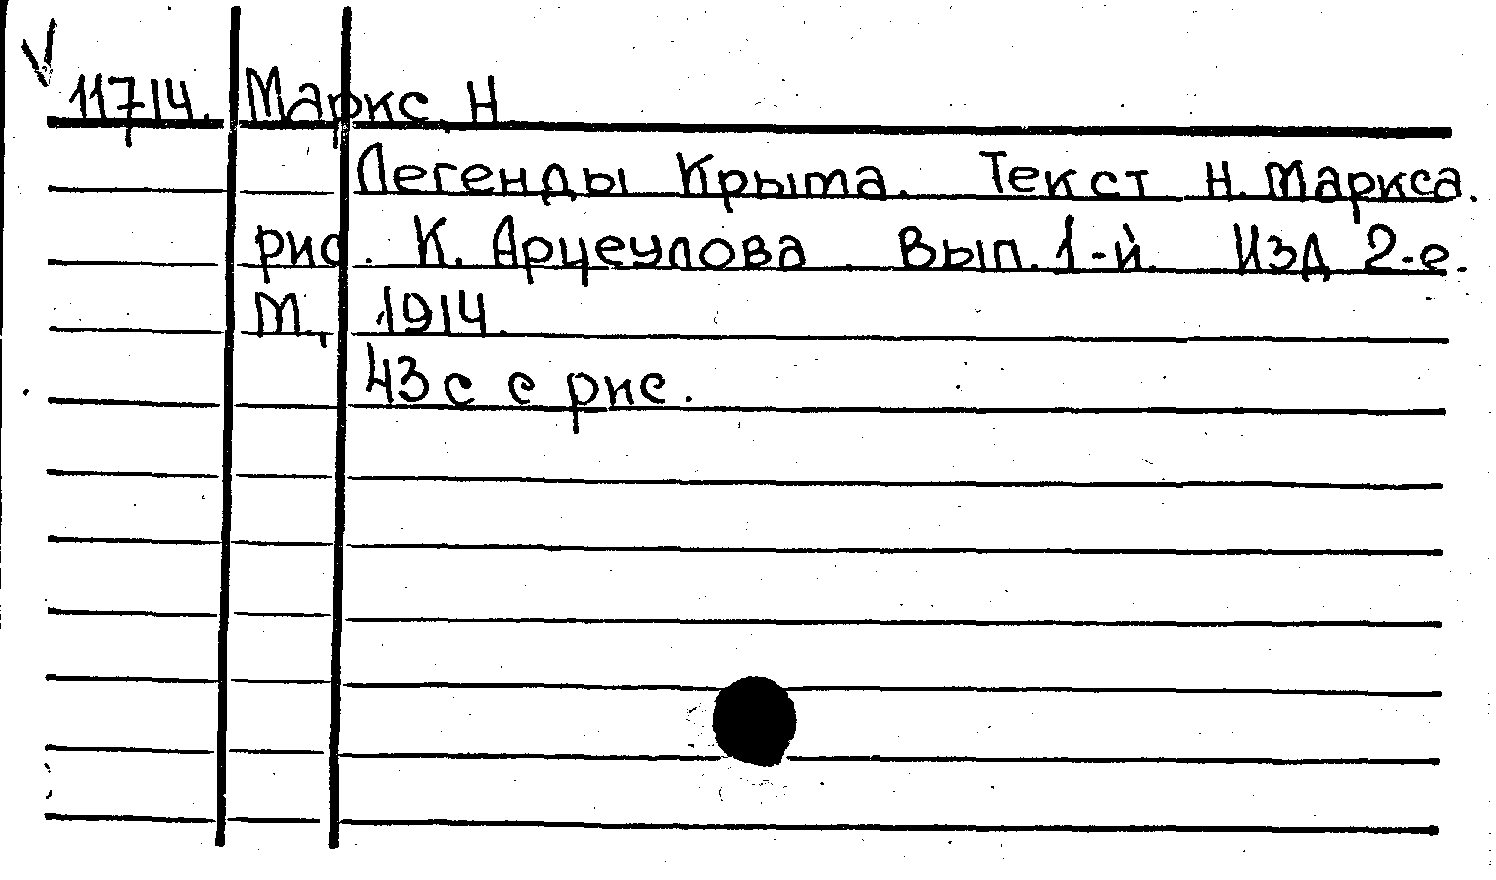 V
11714. Маркс, Н
Легенды Крыма. Текст Н. Маркса.
рис. К. Арцеулова. Вып. 1-й. Изд 2-е.
М., 1914.
43 с с рис.